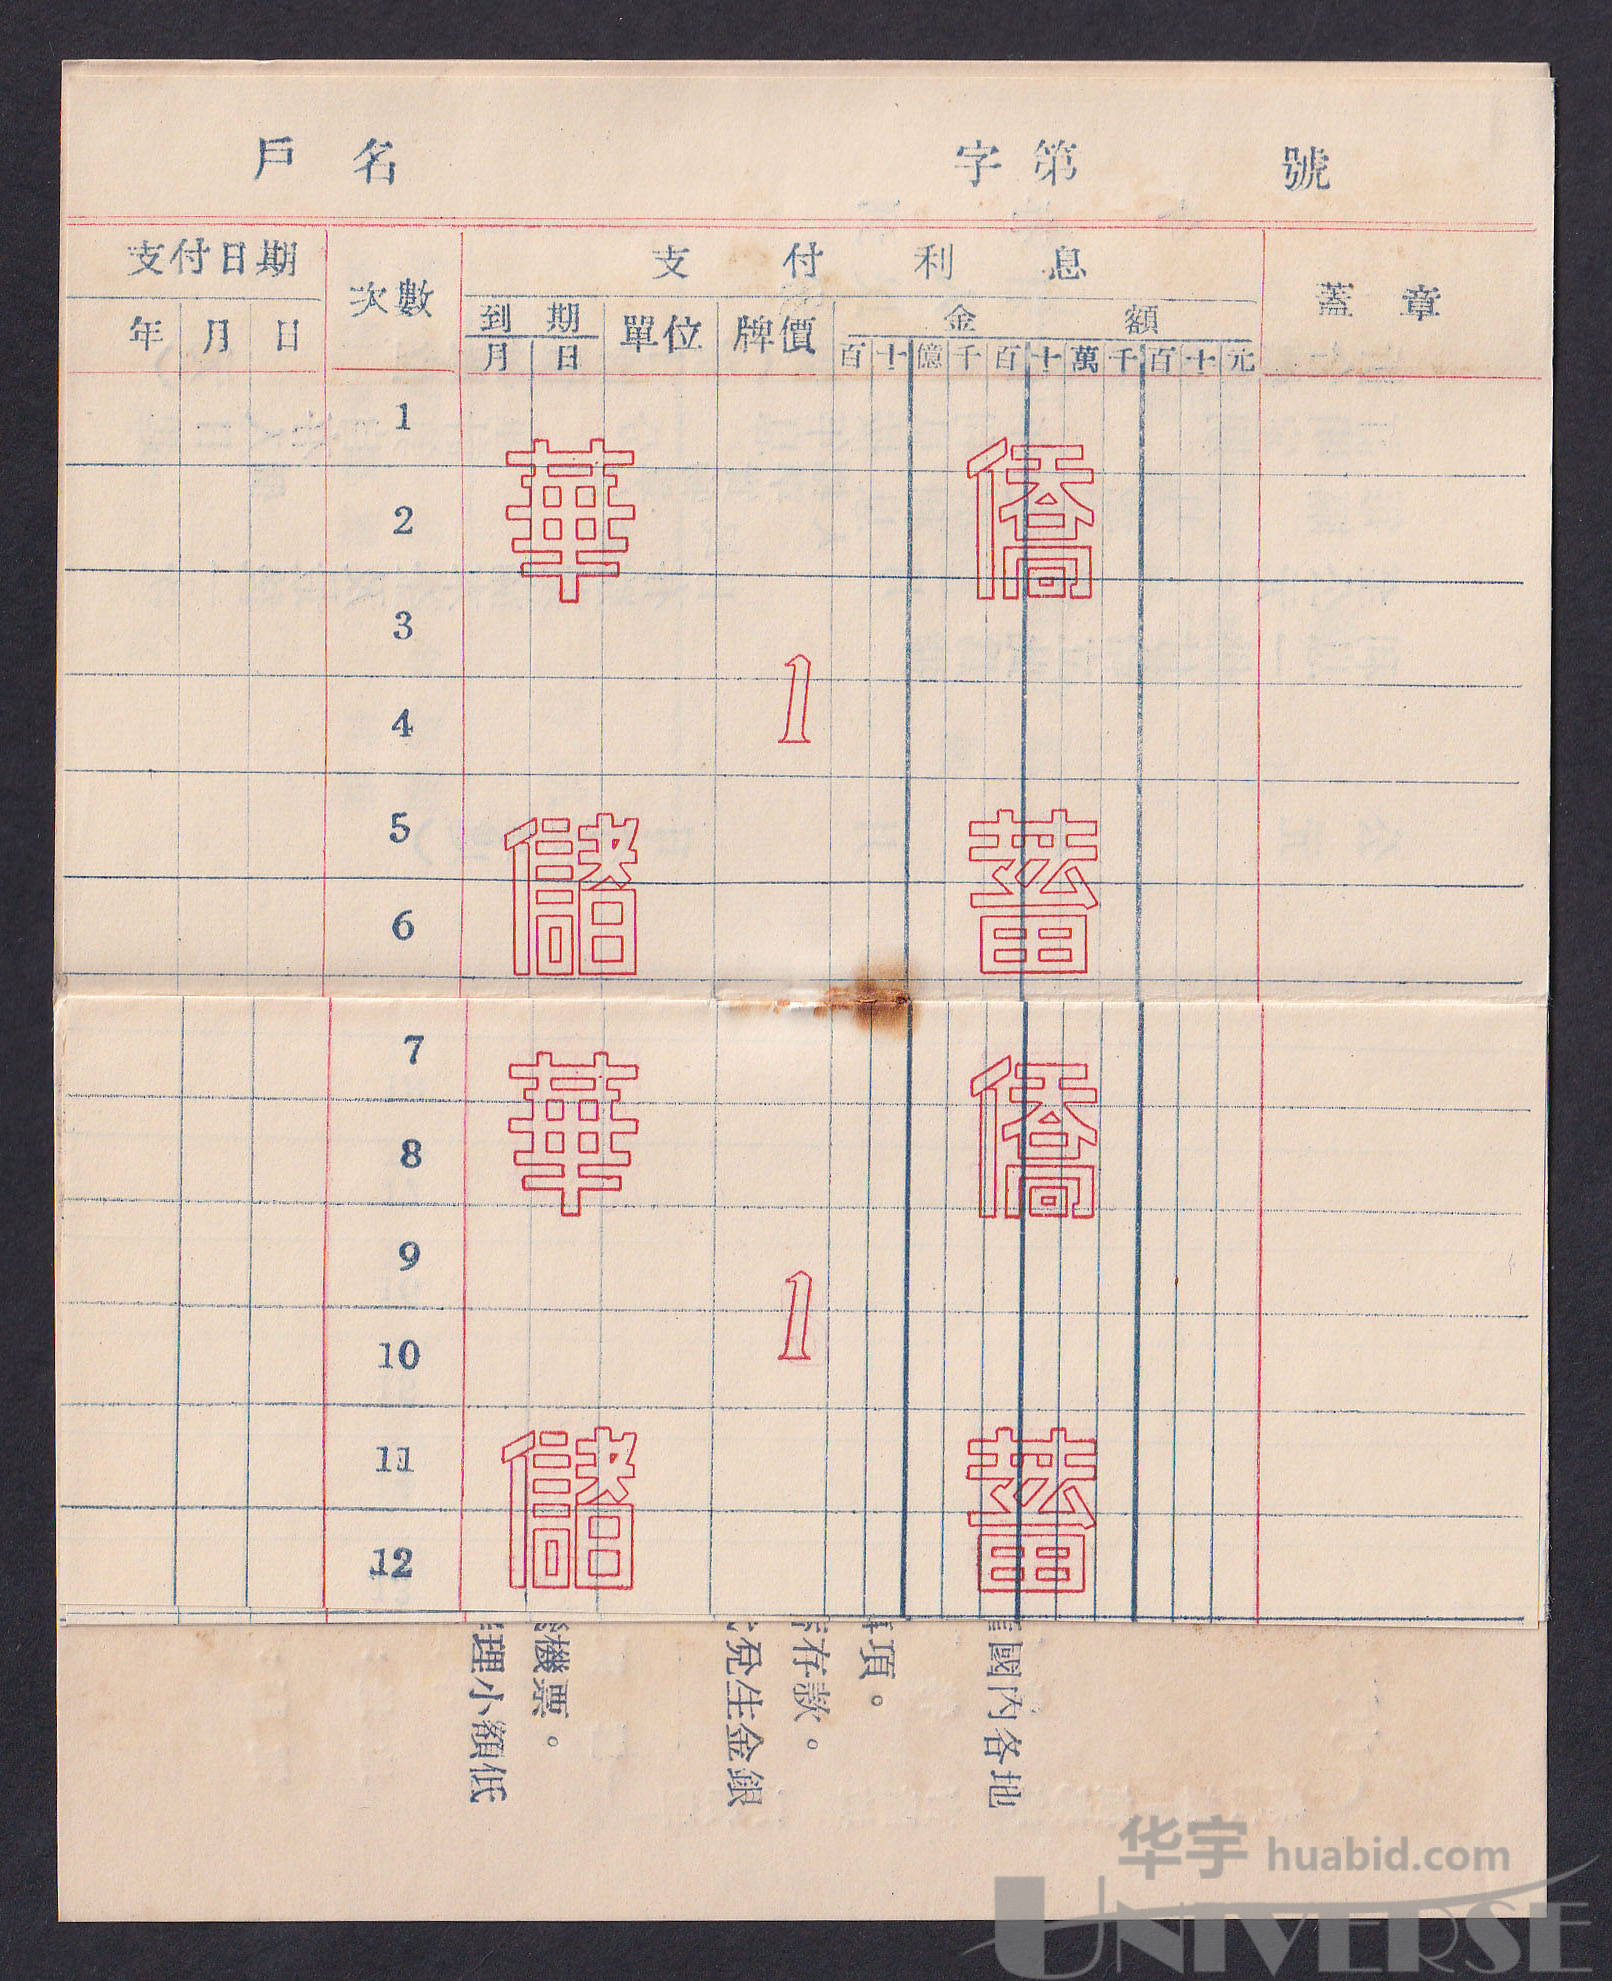 戶名 字第 號
支付日期 次數 支付利息 蓋章
年 月 日 到期 單位 牌價 金額
月 日 百 十 億 千 百 十 萬 千 百 十 元
1
華 僑
2
3
1
4
5
儲 蓄
6
7
華 僑
8
9
1
10
11
儲 蓄
12
國內各地
項。
存款。
兌生金銀
機票。
理小額低
华宇 huabid.com
UNIVERSE